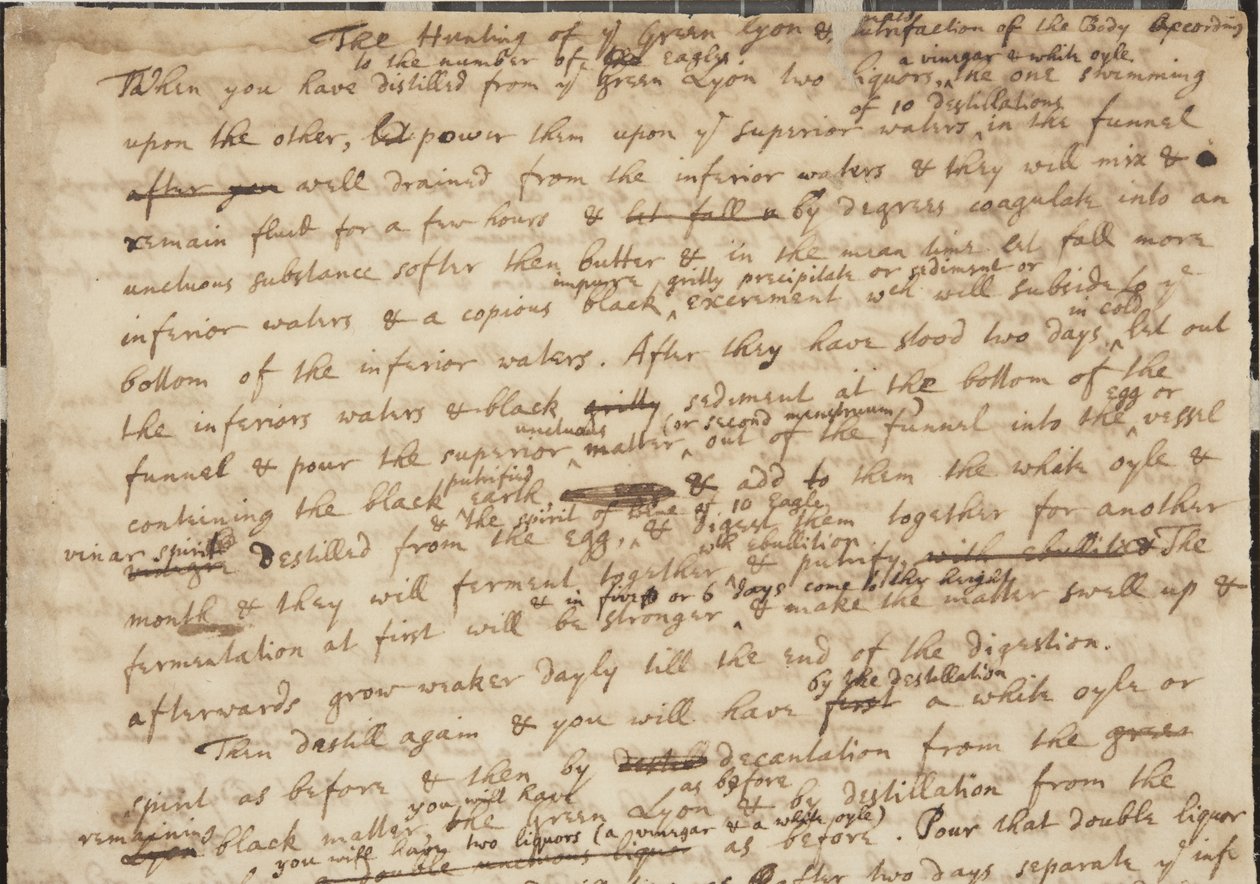 The Hunting of ye Green Lyon & of the Body According
to the number of the eagles.
a vinegar & white oyle
When you have distilled from ye green Lyon two liquors, the one swimming
of 10 destillations
upon the other, let power them upon ye superior waters in the funnel
after you well drained from the inferior waters & they will mix &
remain fluid for a few hours & let fall a by degrees coagulate into an
unctuous substance softer then butter & in the mean time let fall more
impure gritty precipitate or sediment or
inferior waters & a copious black excrement wch will subside to ye
in cold
bottom of the inferior waters. After they have stood two days let out
the inferiors waters & black gritty sediment at the bottom of the
unctuous (or second menstruum) egg or
funnel & pour the superior matter, out of the funnel into the vessel
putrified
containing the black earth & add to them the white oyle &
& the spirit of of 10 Eagle
vinar spirit vinegre destilled from the egg, & digest them together for another
wth ebullition
month & they will ferment together & putrify with ebullition & The
& in five or 6 days come to their height
fermentation at first will be stronger & make the matter swell up &
afterwards grow weaker dayly till the end of the digestion.
by the destillation
Then destill again & you will have first a white oyle or
spirit as before & then by decantation from the green
you will have as before
remaining Lyon black matter, the Green Lyon & by destillation from the
you will have two liquors (a vinegar & a white oyle)
double unctuous liquor as before. Pour that double liquor
after two days separate ye infe